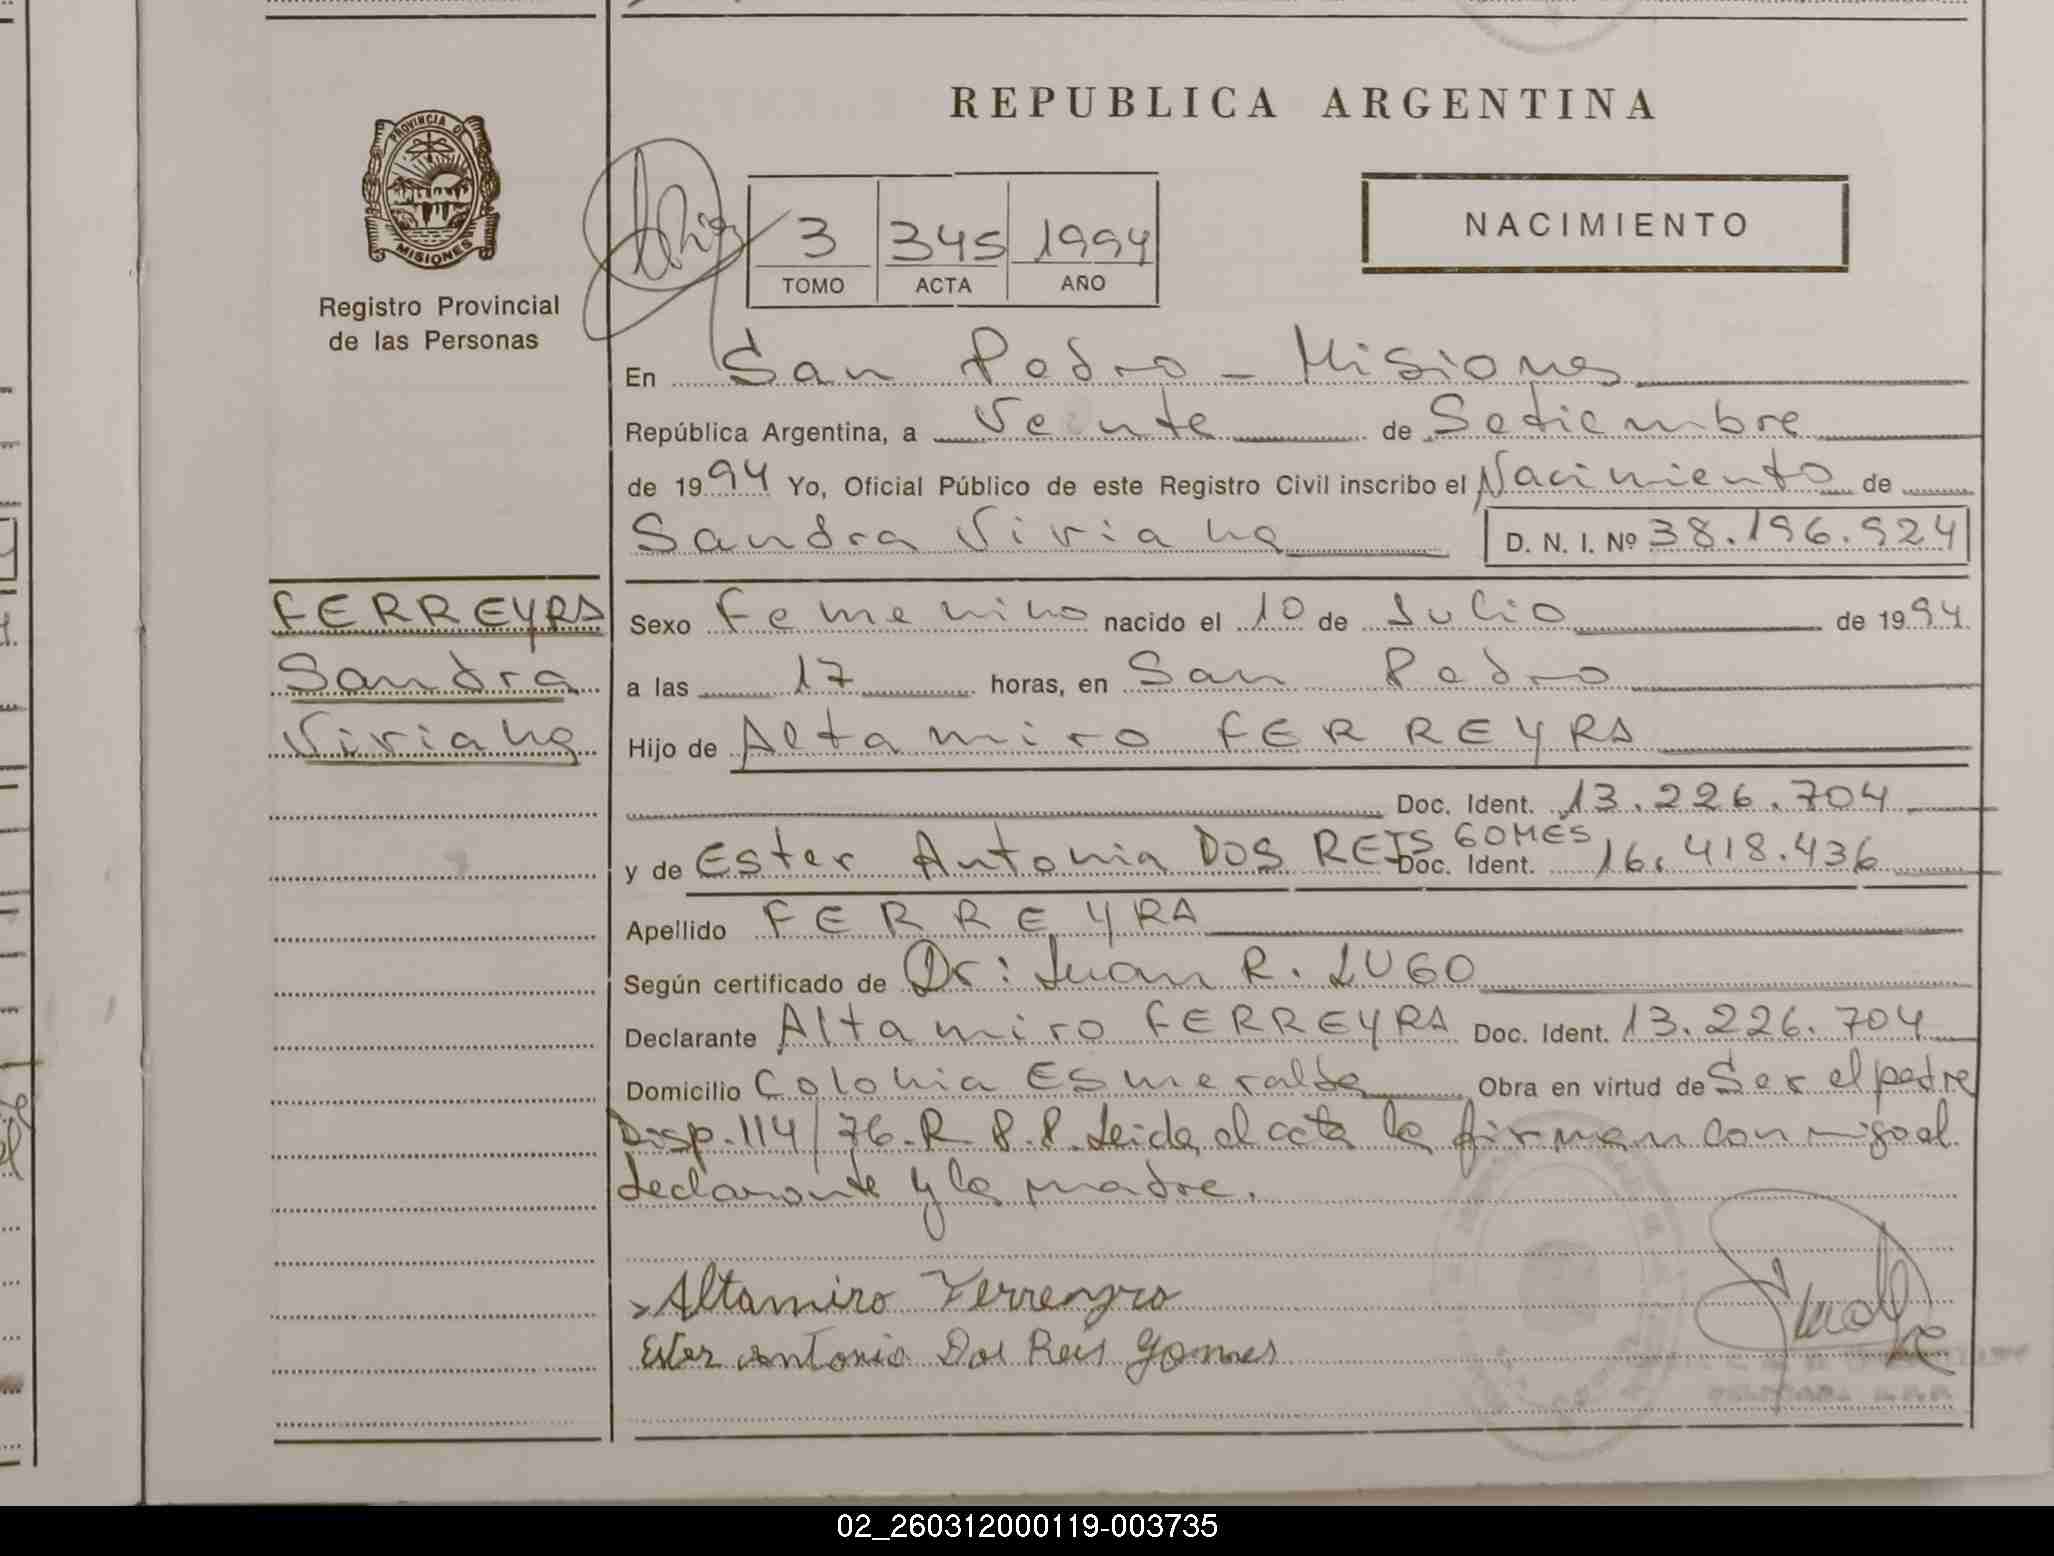 REPUBLICA ARGENTINA
PROVINCIA DE
MISIONES
Registro Provincial
de las Personas
3 345 1994
TOMO ACTA AÑO
NACIMIENTO
En San Pedro - Misiones
República Argentina, a Veinte de Setiembre
de 1994 Yo, Oficial Público de este Registro Civil inscribo el Nacimiento de
Sandra Viviana D. N. I. Nº 38.196.924
FERREYRA
Sandra
Viviana
Sexo Femenino nacido el 10 de Julio de 1994
a las 17 horas, en San Pedro
Hijo de Altamiro FERREYRA
Doc. Ident. 13.226.704
y de Ester Antonia DOS REIS GOMES Doc. Ident. 16.418.436
Apellido FERREYRA
Según certificado de Dr: Juan R. LUGO
Declarante Altamiro FERREYRA Doc. Ident. 13.226.704
Domicilio Colonia Esmeralda Obra en virtud de Ser el padre
Disp. 114/76. R.P.P. Leida el acta la firman conmigo el
declarante y la madre.
Altamiro Ferreyra
Ester Antonia Dos Reis Gomes
02_260312000119-003735